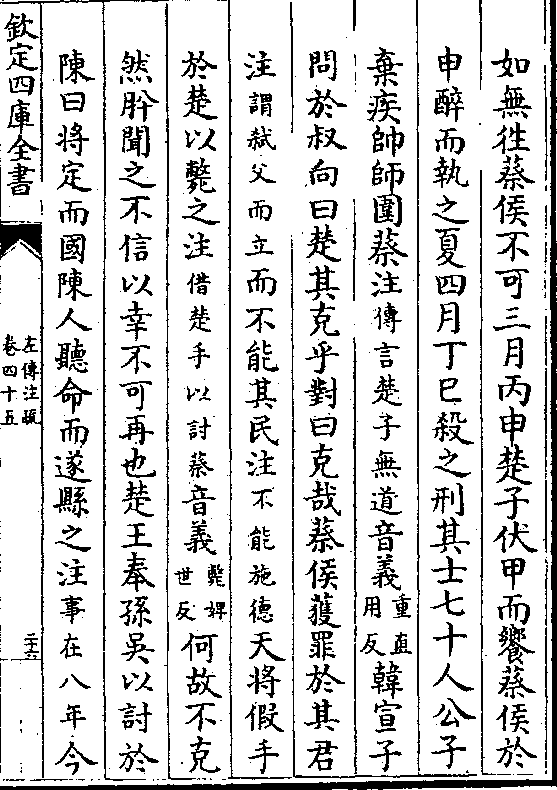 如無往蔡侯不可三月丙申楚子伏甲而饗蔡侯於
申醉而執之夏四月丁巳殺之刑其士七十人公子
棄疾帥師圍蔡注傳言楚子無道音義重直用反韓宣子
問於叔向曰楚其克乎對曰克哉蔡侯獲罪於其君
注謂弑父而立而不能其民注不能施德天將假手
於楚以斃之注借楚手以討蔡音義斃婢世反何故不克
然肸聞之不信以幸不可再也楚王奉孫吳以討於
陳曰將定而國陳人聽命而遂縣之注事在八年今
欽定四庫全書
左傳注疏
卷四十五
二十六